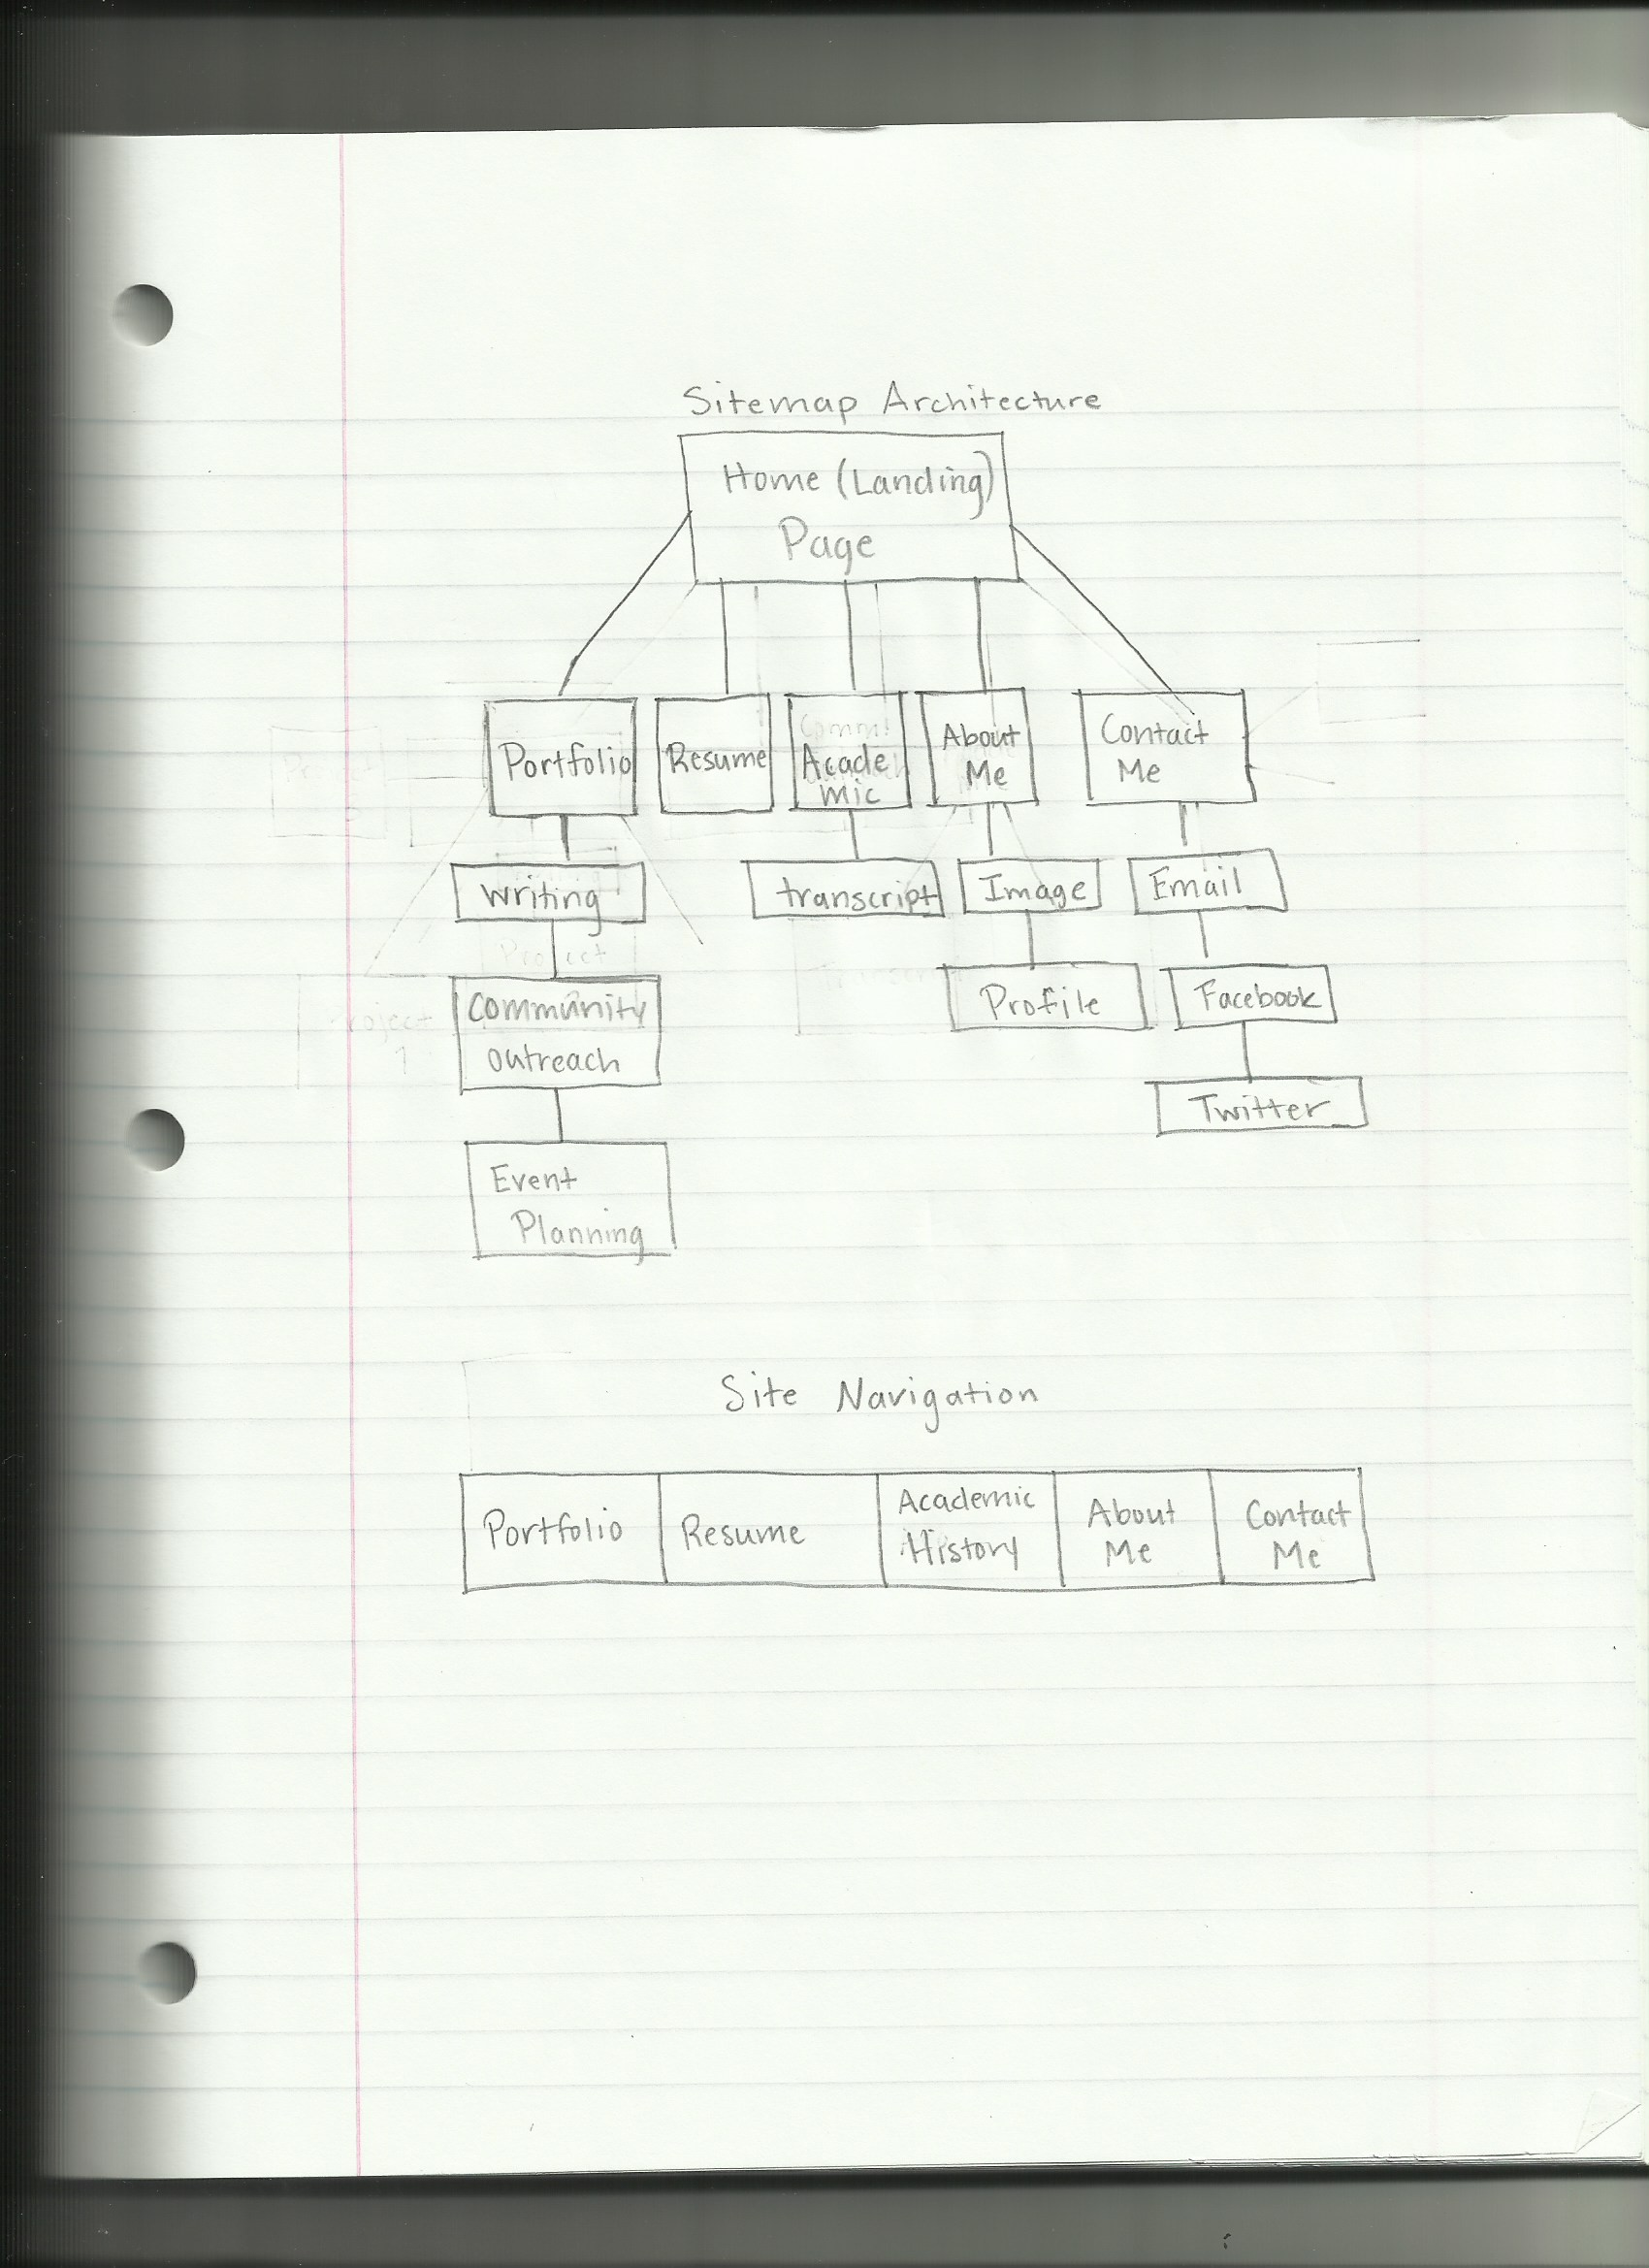 Sitemap Architecture
Home (Landing)
Page
Portfolio
Resume
Acade
mic
About
Me
Contact
Me
writing
transcript
Image
Email
Project
Community
outreach
Profile
Facebook
Project
1
Twitter
Event
Planning
Site Navigation
Portfolio
Resume
Academic
History
About
Me
Contact
Me